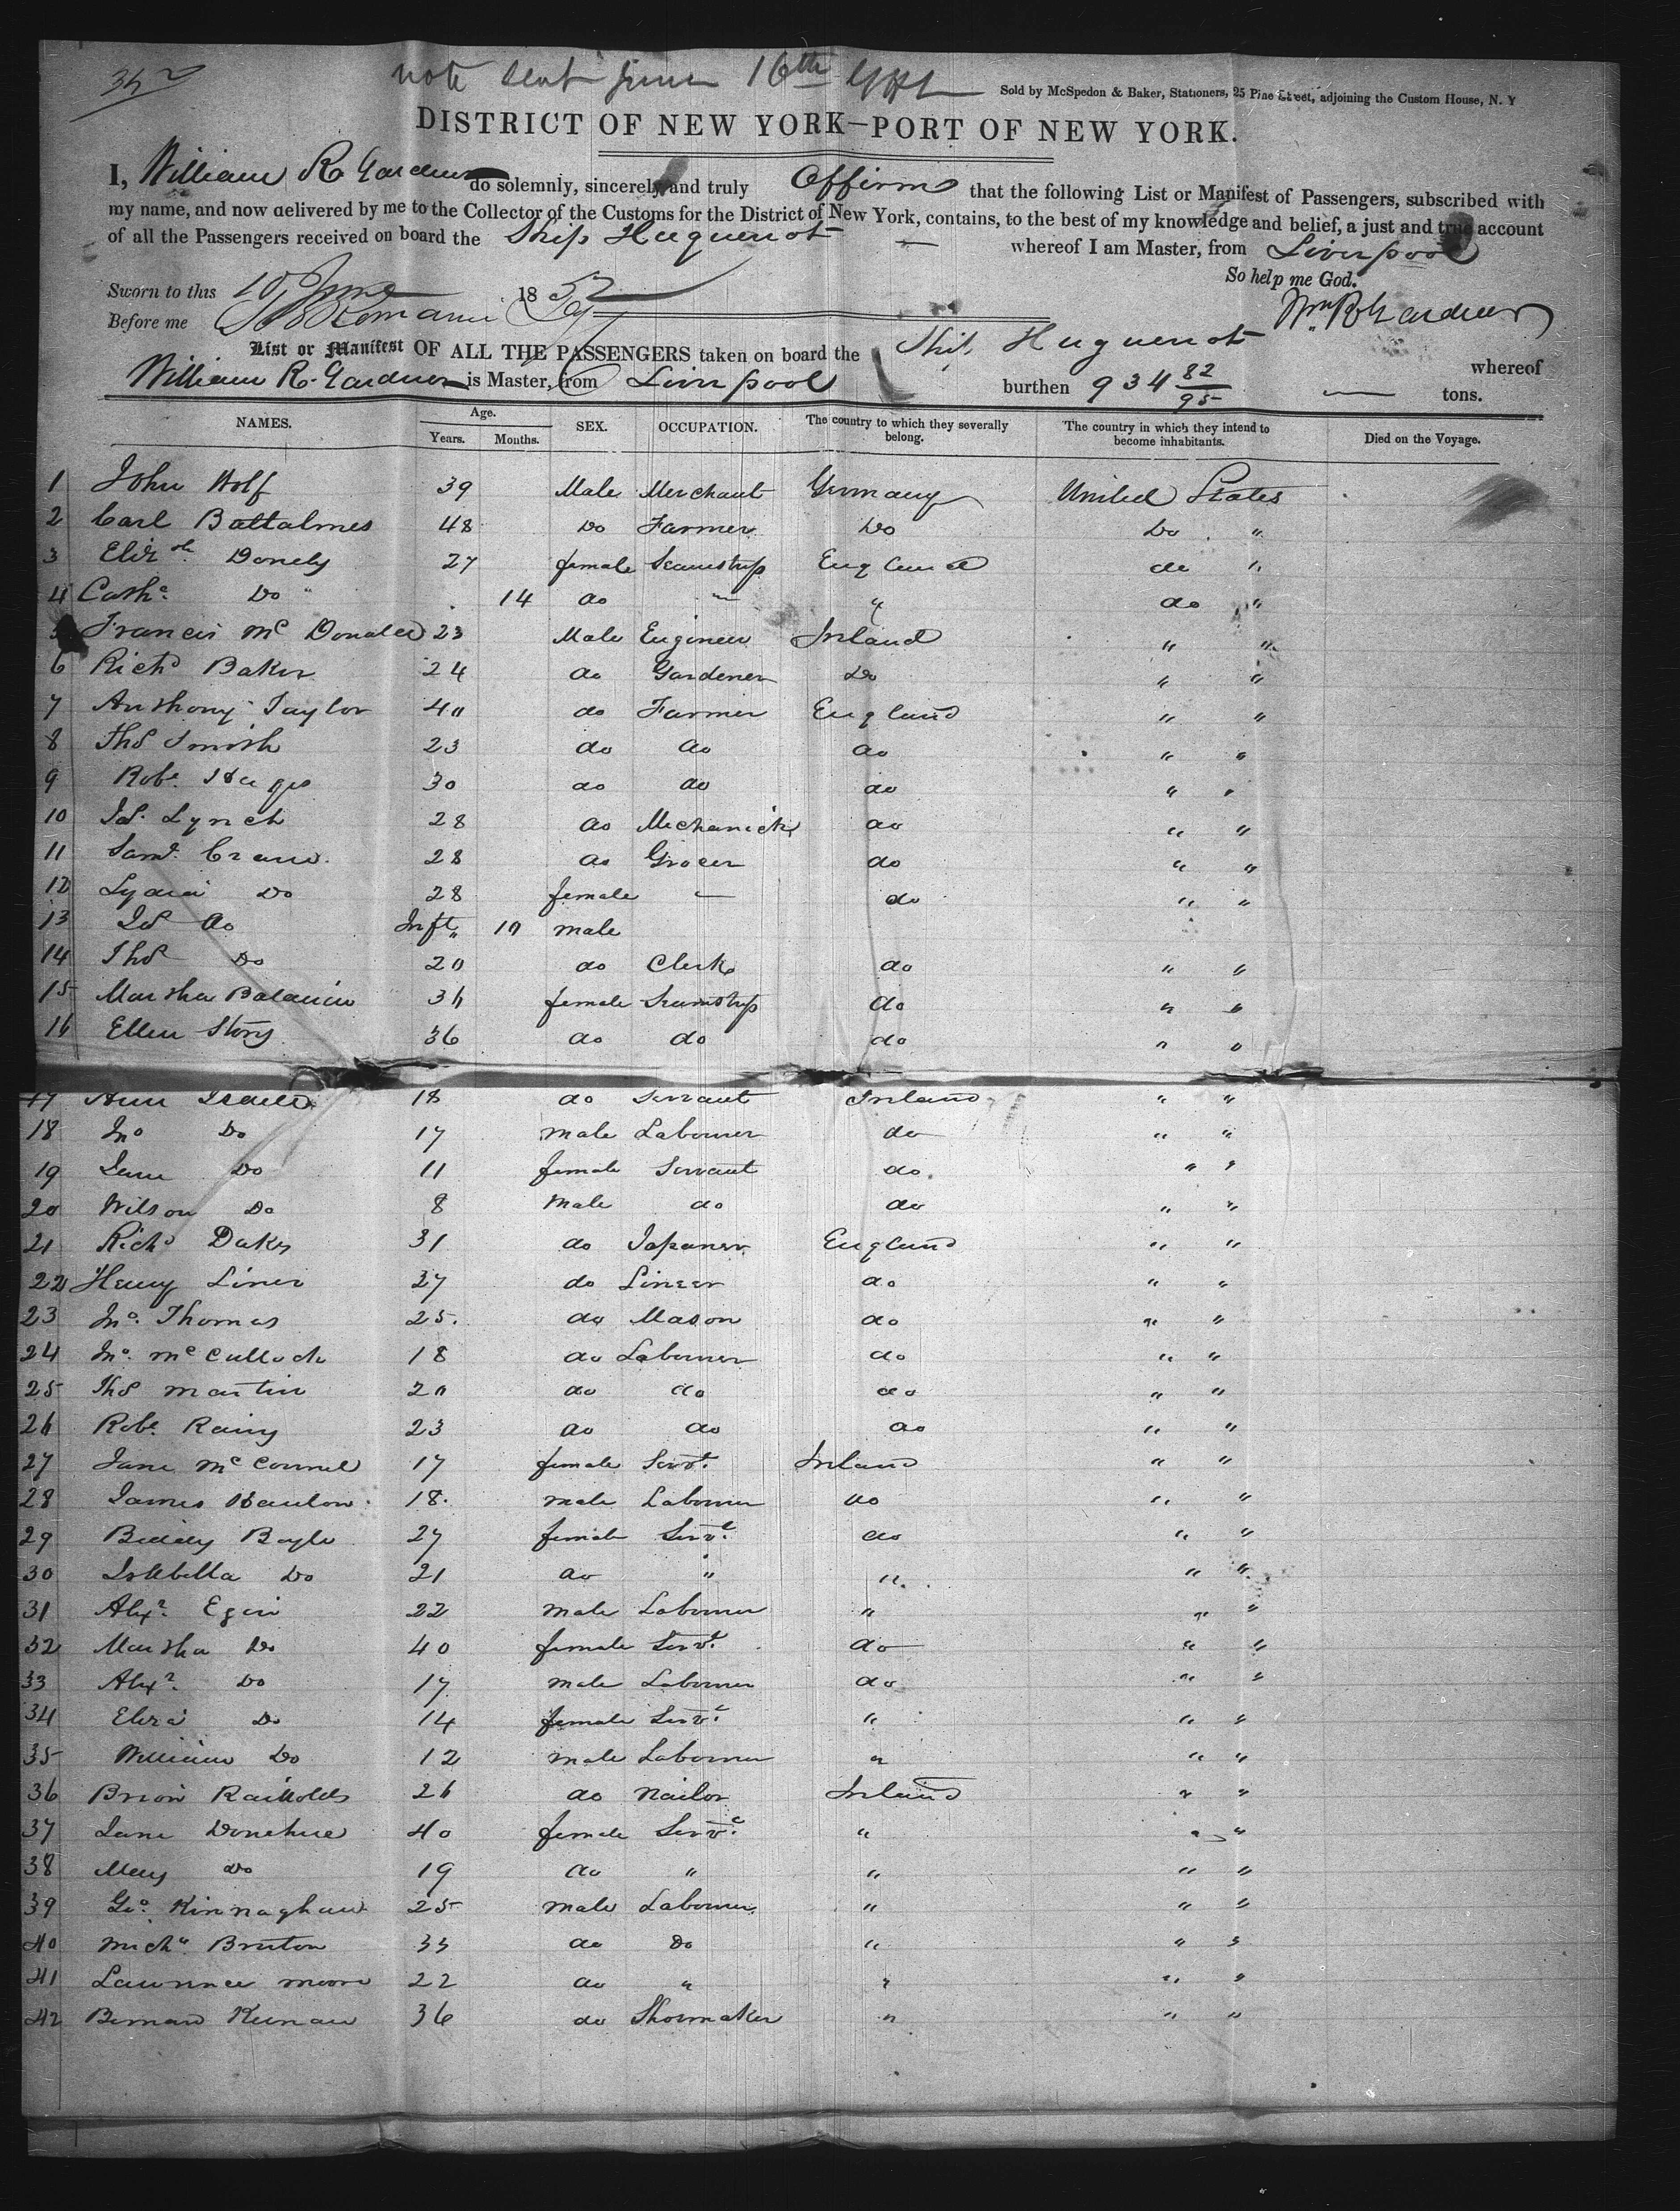 note sent June 16th
Sold by McSpedon & Baker, Stationers, 25 Pine Street, adjoining the Custom House, N. Y
DISTRICT OF NEW YORK—PORT OF NEW YORK.
I, William R. Gardner do solemnly, sincerely and truly Affirm that the following List or Manifest of Passengers, subscribed with
my name, and now delivered by me to the Collector of the Customs for the District of New York, contains, to the best of my knowledge and belief, a just and true account
of all the Passengers received on board the Ship Huguenot whereof I am Master, from Liverpool
So help me God.
Sworn to this 10 June 1852
Wm R Gardner
Before me
List or Manifest OF ALL THE PASSENGERS taken on board the Ship Huguenot whereof
William R. Gardner is Master, from Liverpool burthen 934 82/95 tons.
NAMES. Age. Years. Months. SEX. OCCUPATION. The country to which they severally belong. The country in which they intend to become inhabitants. Died on the Voyage.
1 John Wolf 39 Male Merchant Germany United States
2 Carl Battalmes 48 Do Farmer Do Do "
3 Elizth Donely 27 female Seamstress England do "
4 Cathe Do 14 do " " do "
5 Francis Mc Donald 23 Male Engineer Ireland " "
6 Richd Baker 24 do Gardener Do " "
7 Anthony Taylor 40 do Farmer England " "
8 Ths Smith 23 do do do " "
9 Robt 30 do do do " "
10 Js. Lynch 28 do Mechanick do " "
11 Saml. 28 do Grocer do " "
12 Lydia Do 28 female — do " "
13 Js do Inft " 10 male
14 Ths Do 20 do Clerk do " "
15 Martha 36 female Seamstress do " "
16 Ellen Story 36 do do do " "
17 Ann 18 do Servant Ireland " "
18 Jno Do 17 male Labourer do " "
19 Jane Do 11 female Servant do " "
20 Wilson Do 8 Male do do " "
21 Richd Dakes 31 do Japaner England " "
22 Henry Liner 27 do do " "
23 Jno. Thomas 25 do Mason do " "
24 Jno. McCulloch 18 do Labourer do " "
25 Ths Martin 20 do do do " "
26 Robt. Rainy 23 do do do " "
27 Jane McConnel 17 female Servt. Ireland " "
28 James Hanlon 18 male Labourer do " "
29 Biddy Boyle 27 female Servt. do " "
30 Isabella Do 21 do " " " "
31 Alexr. Egin 22 male Labourer " " "
32 Martha Do 40 female Servt. do " "
33 Alexr. Do 17 male Labourer do " "
34 Eliza Do 14 female Servt. " " "
35 William Do 12 male Labourer " " "
36 Brion Rainolds 26 do Nailor Ireland " "
37 Jane Donehue 40 female Servt. " " "
38 Mary Do 19 do " " " "
39 Geo. Kinnaghan 25 male Labourer " " "
40 Michl. Bruton 33 do Do " " "
41 Lawrence Moore 22 do " " " "
42 Bernard Keenan 36 do Shoemaker " " "